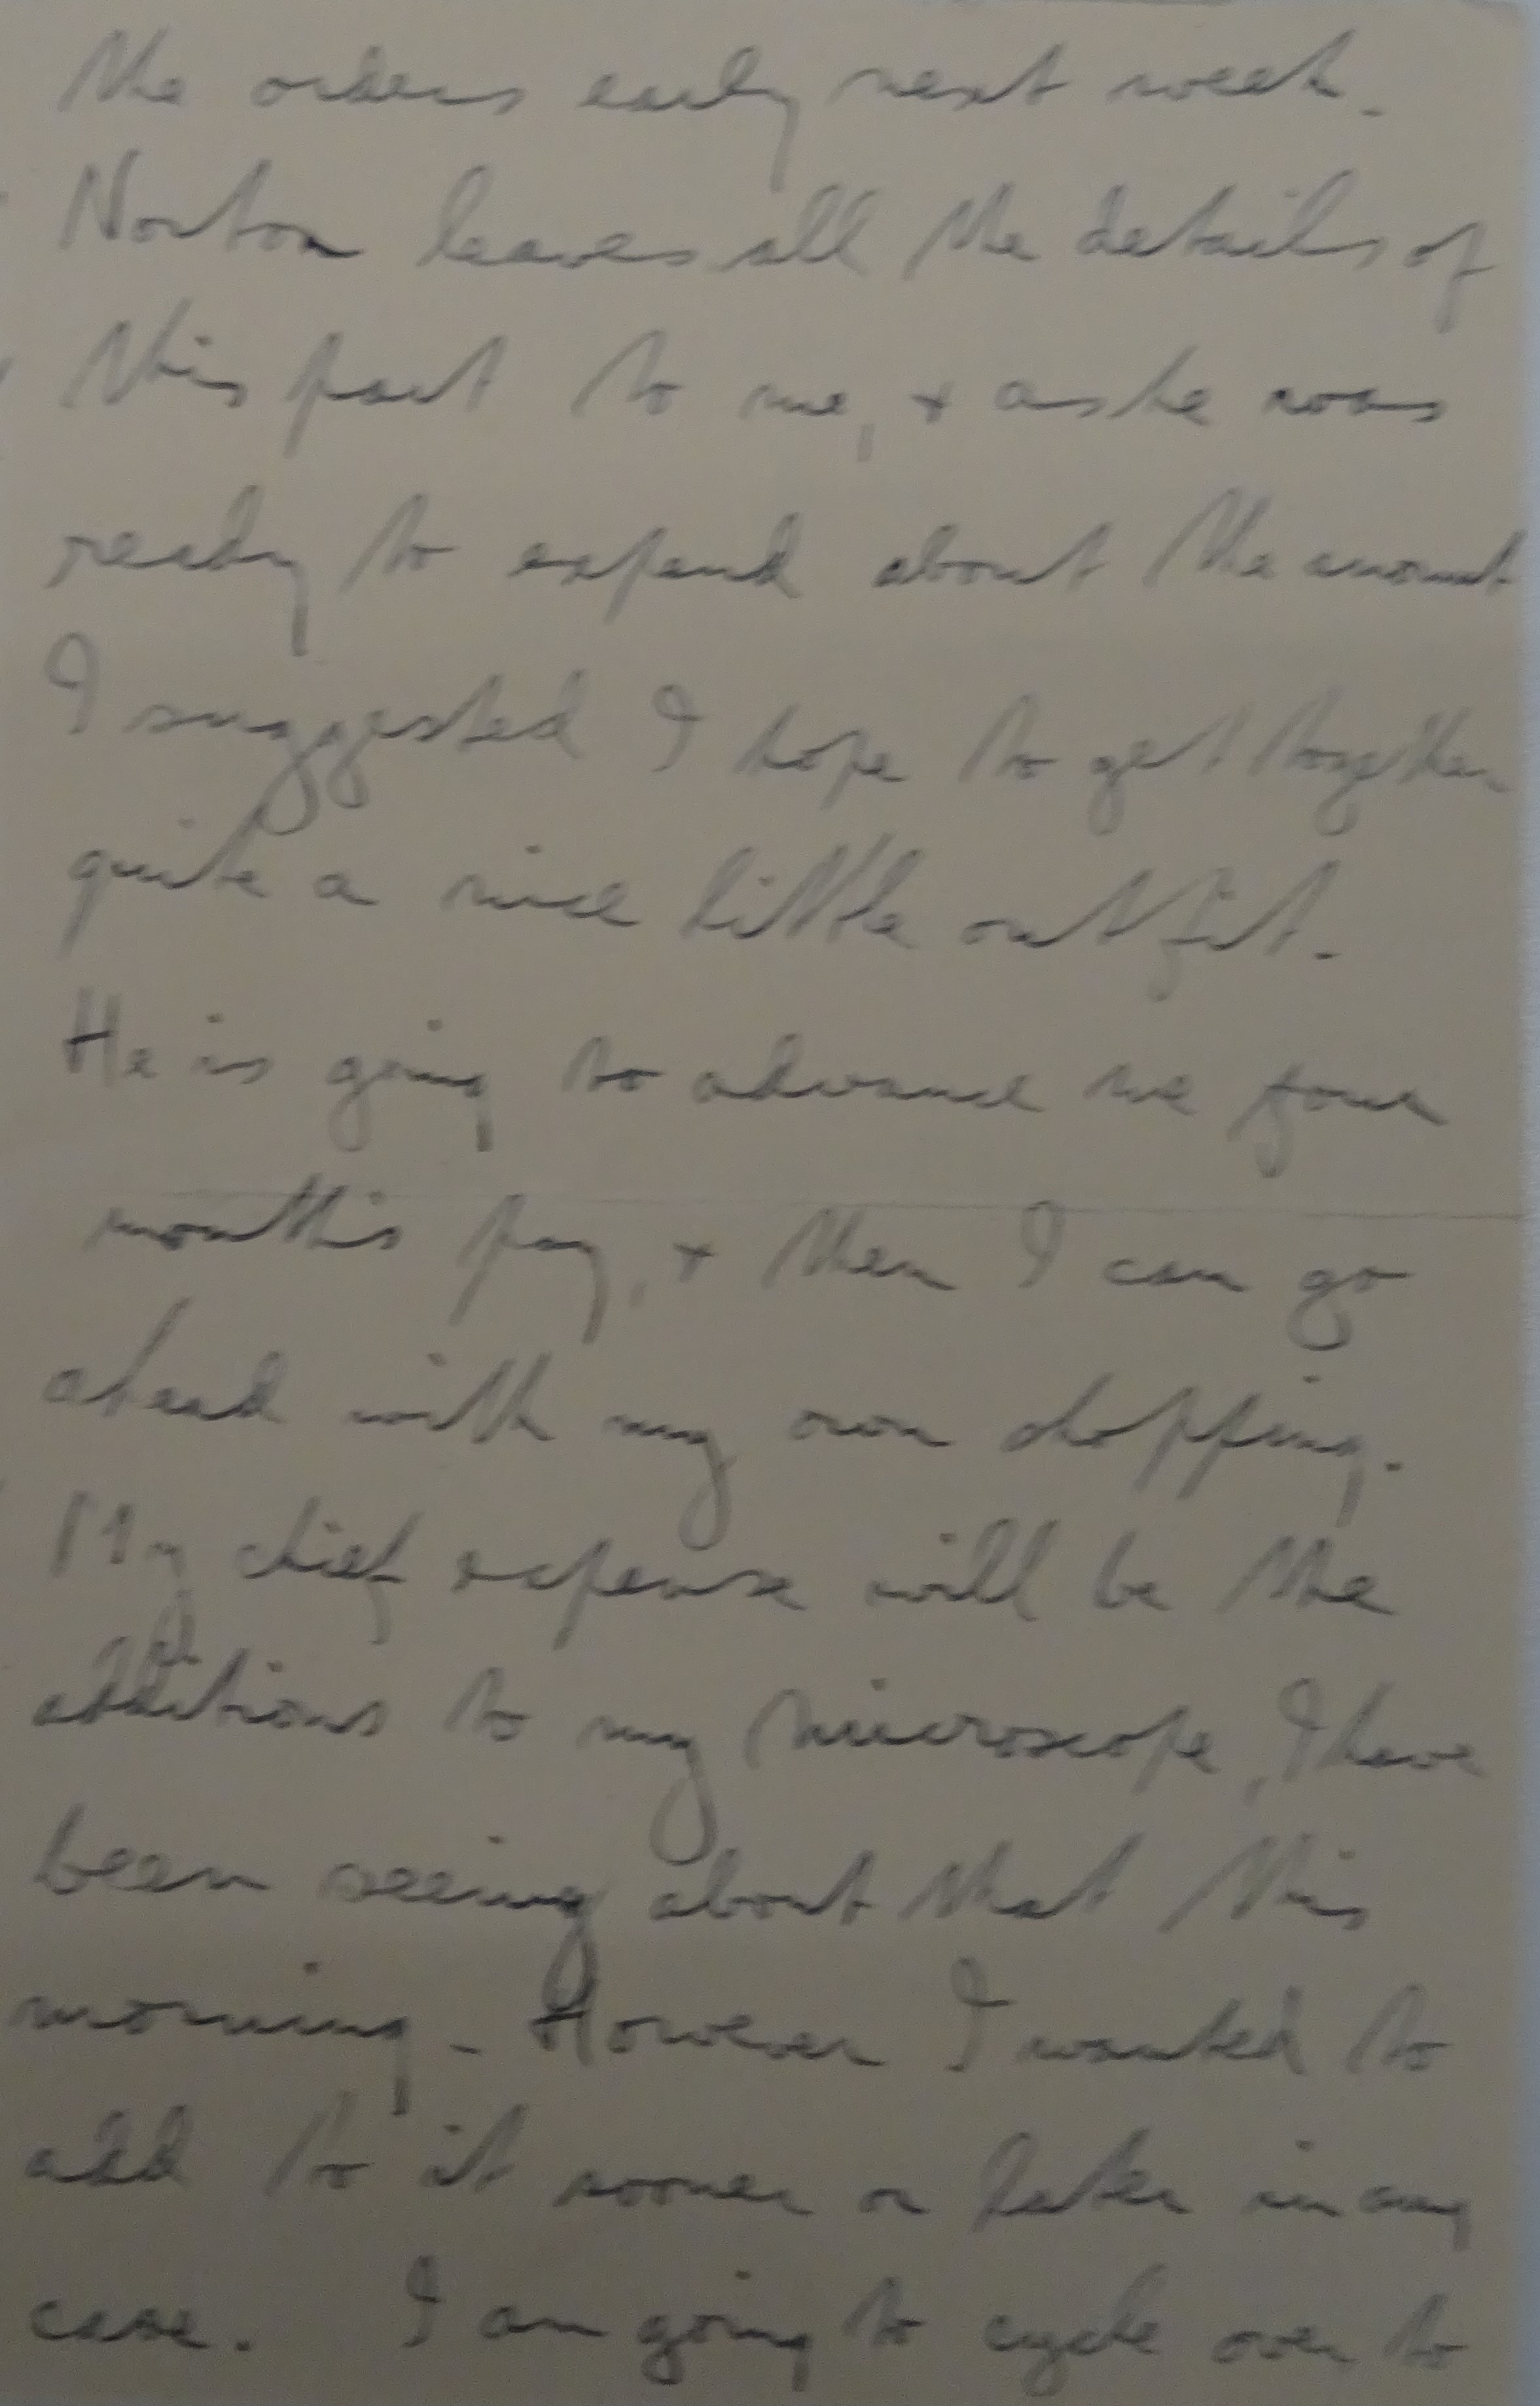 the orders early next week.
Norton leaves all the details of
this part to me, + as he was
ready to expend about the amount
I suggested I hope to get together
quite a nice little outfit.
He is going to advance me four
months pay, + then I can go
ahead with my own shopping.
My chief expense will be the
additions to my microscope, I have
been seeing about that this
morning. However I wanted to
add to it sooner or later in any
case. I am going to cycle over to